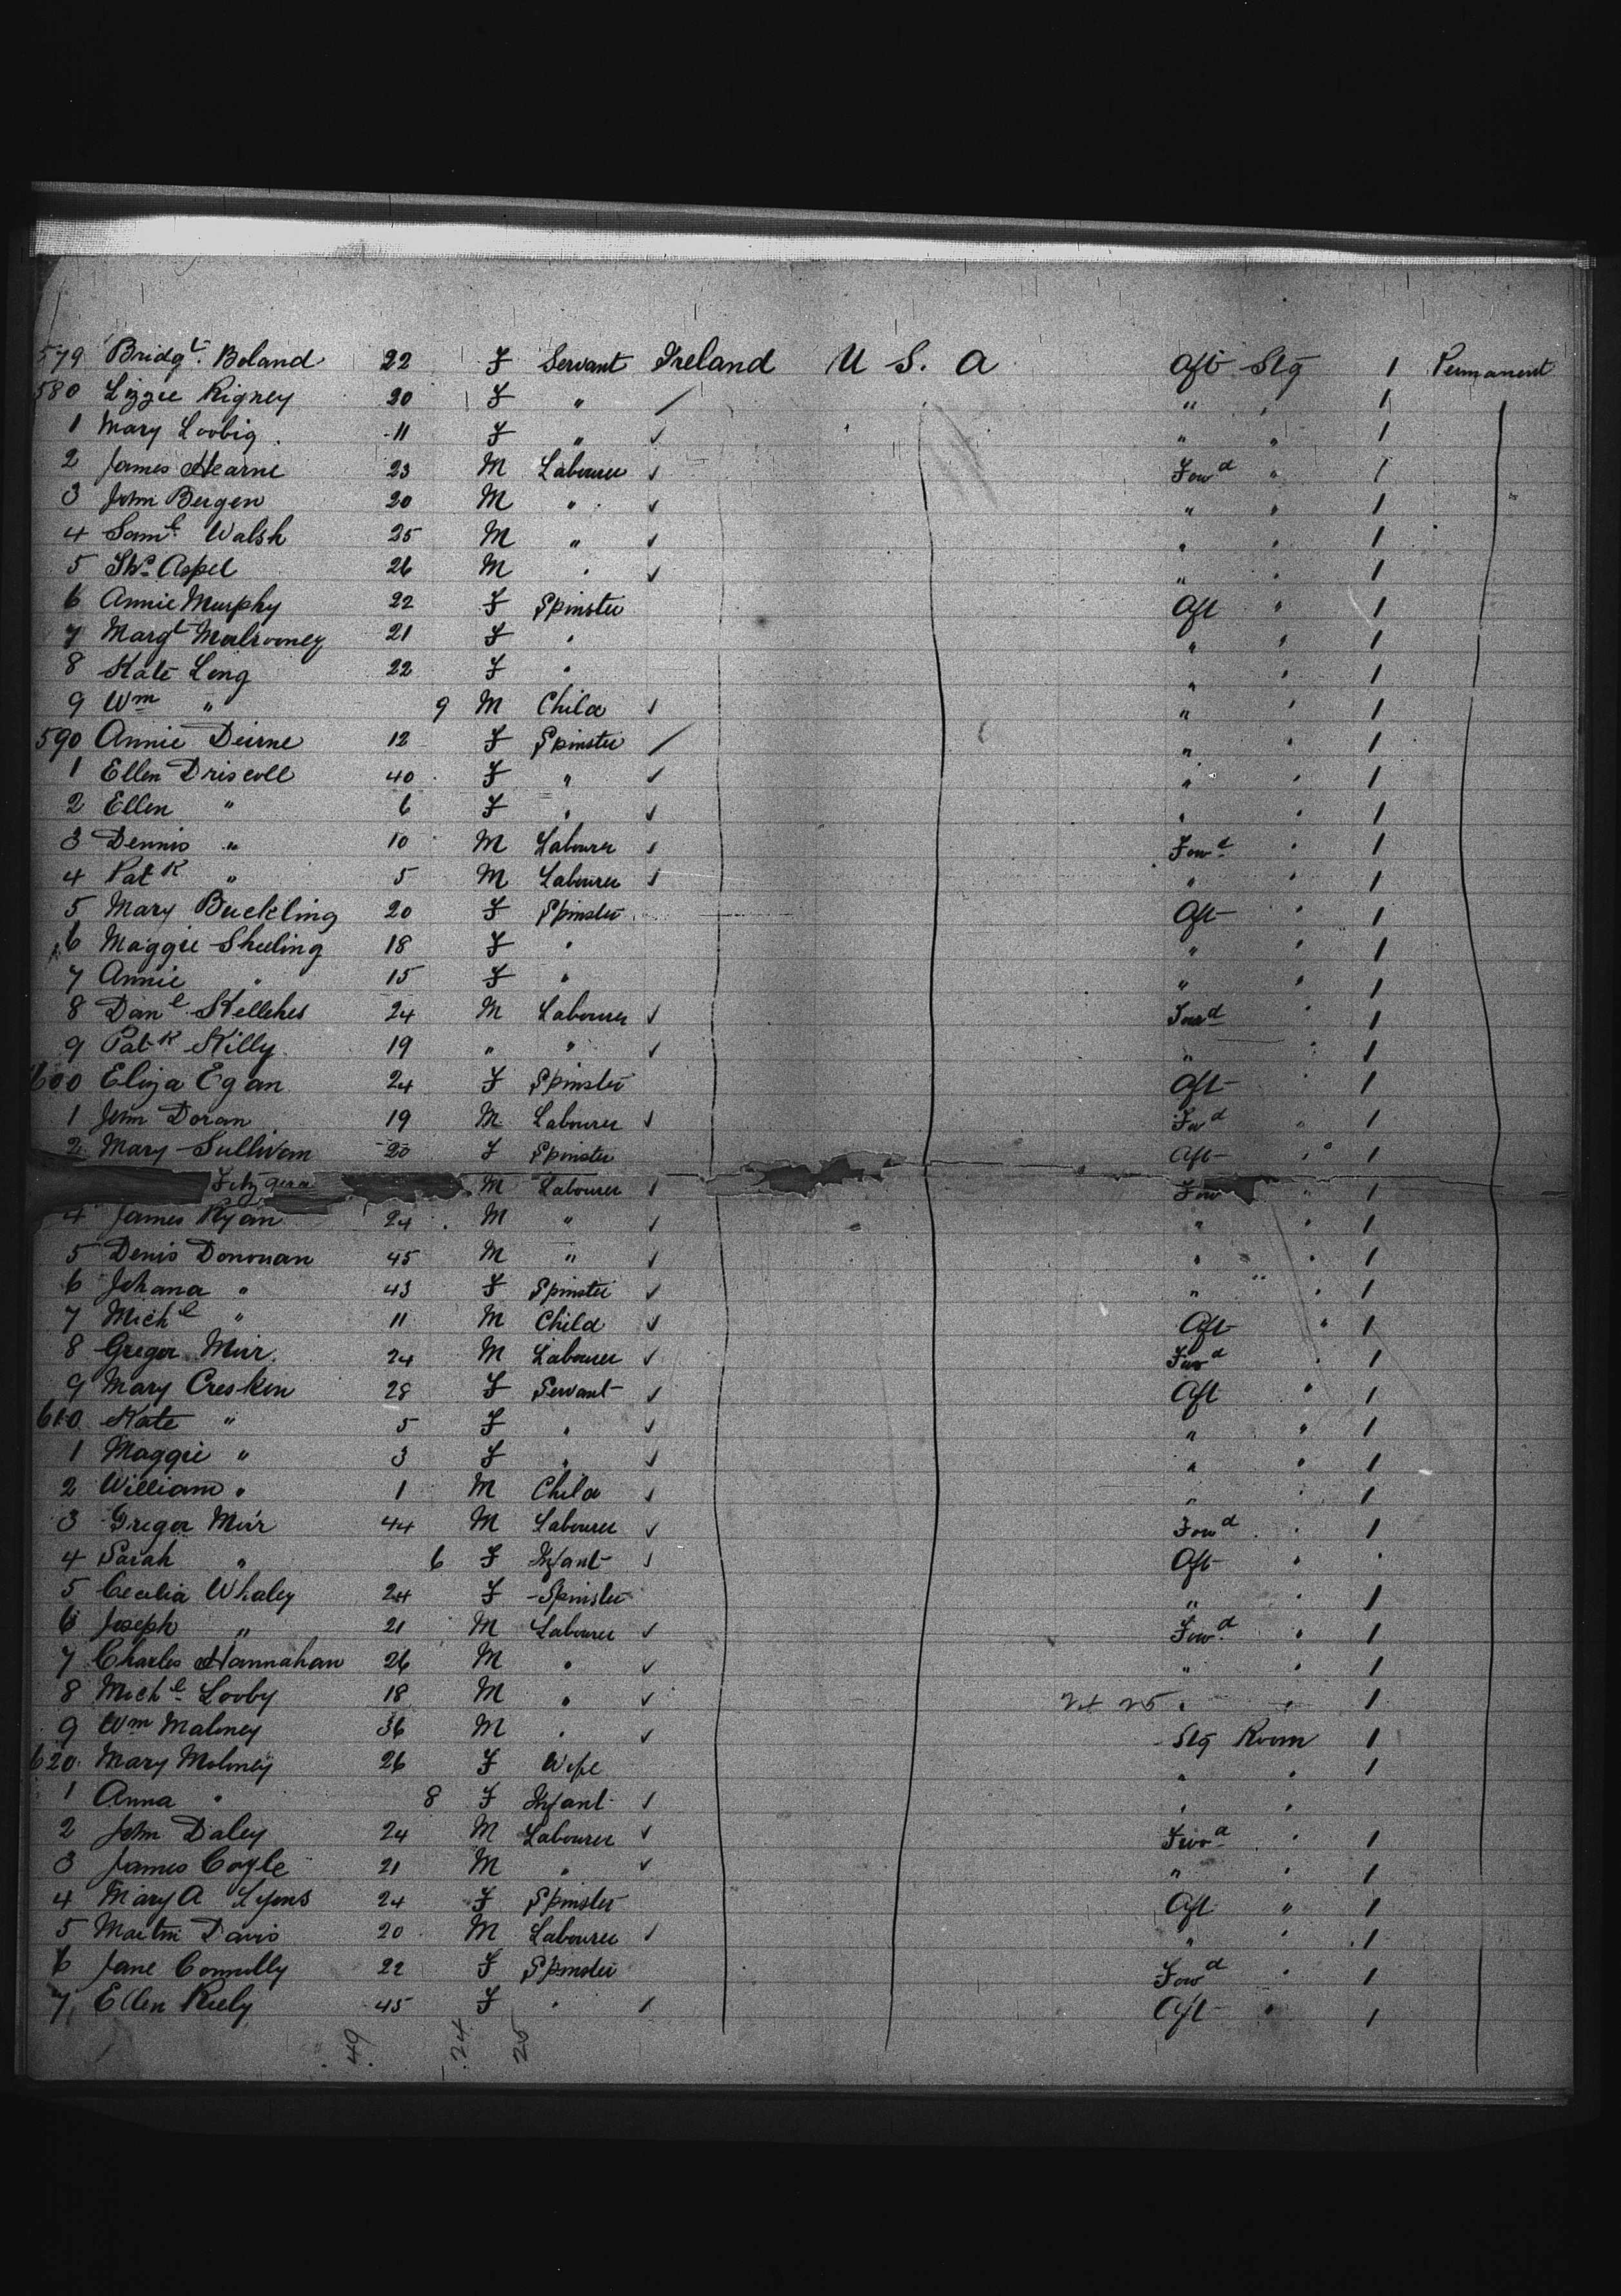 579 Bridgt. Boland 22 F Servant Ireland U S. A Aft Stg 1 Permanent
580 Lizzie Rigney 20 F " / " " 1
1 Mary Loobig 11 F " ✓ " " 1
2 James Hearne 23 M Labourer ✓ Fowd " 1
3 John Bergen 20 M " ✓ " " 1
4 Saml. Walsh 25 M " ✓ " " 1
5 Thos Aspel 26 M " ✓ " " 1
6 Annie Murphy 22 F Spinster Aft " 1
7 Margt Mulrooney 21 F " " " 1
8 Kate Long 22 F " " " 1
9 Wm " 9 M Child ✓ " " 1
590 Annie Deirne 12 F Spinster / " " 1
1 Ellen Driscoll 40 F " ✓ " " 1
2 Ellen " 6 F " ✓ " " 1
3 Dennis " 10 M Labourer ✓ Fowd " 1
4 Patk " 5 M Labourer ✓ " " 1
5 Mary Buckling 20 F Spinster Aft " 1
6 Maggie Sheeling 18 F " " " 1
7 Annie " 15 F " " " 1
8 Danl Kellehes 24 M Labourer ✓ Fowd " 1
9 Patk Killy 19 " " ✓ " " 1
600 Eliza Egan 24 F Spinster Aft " 1
1 John Doran 19 M Labourer ✓ Fwd " 1
2 Mary Sullivan 20 F Spinster Aft " 1
Fitzgera M Labourer ✓ Fow " 1
4 James Ryan 24 M " ✓ " " 1
5 Denis Donovan 45 M " ✓ " " 1
6 Johana " 43 F Spinster ✓ " " 1
7 Michl " 11 M Child ✓ Aft " 1
8 Gregor Muir 24 M Labourer ✓ Fwd " 1
9 Mary Creskin 28 F Servant ✓ Aft " 1
610 Kate " 5 F " ✓ " " 1
1 Maggie " 3 F " ✓ " " 1
2 William " 1 M Child ✓ " " 1
3 Gregor Muir 44 M Labourer ✓ Fowd " 1
4 Sarah " 6 F Infant ✓ Aft "
5 Cecilia Whaley 24 F Spinster " " 1
6 Joseph " 21 M Labourer ✓ Fowd " 1
7 Charles Hannahan 26 M " ✓ " " 1
8 Michl Looby 18 M " ✓ 24 25 " " 1
9 Wm Maloney 36 M " ✓ Stg Room 1
620 Mary Moloney 26 F Wife " " 1
1 Anna " 8 F Infant ✓ " "
2 John Daley 24 M Labourer ✓ Fwod " 1
3 James Coyle 21 M " ✓ " " 1
4 Mary A Lyons 24 F Spinster Aft " 1
5 Martin Davis 20 M Labourer ✓ " " 1
6 Jane Connolly 22 F Spinster Fowd " 1
7 Ellen Riely 45 F " ✓ Aft " 1
49 24 25